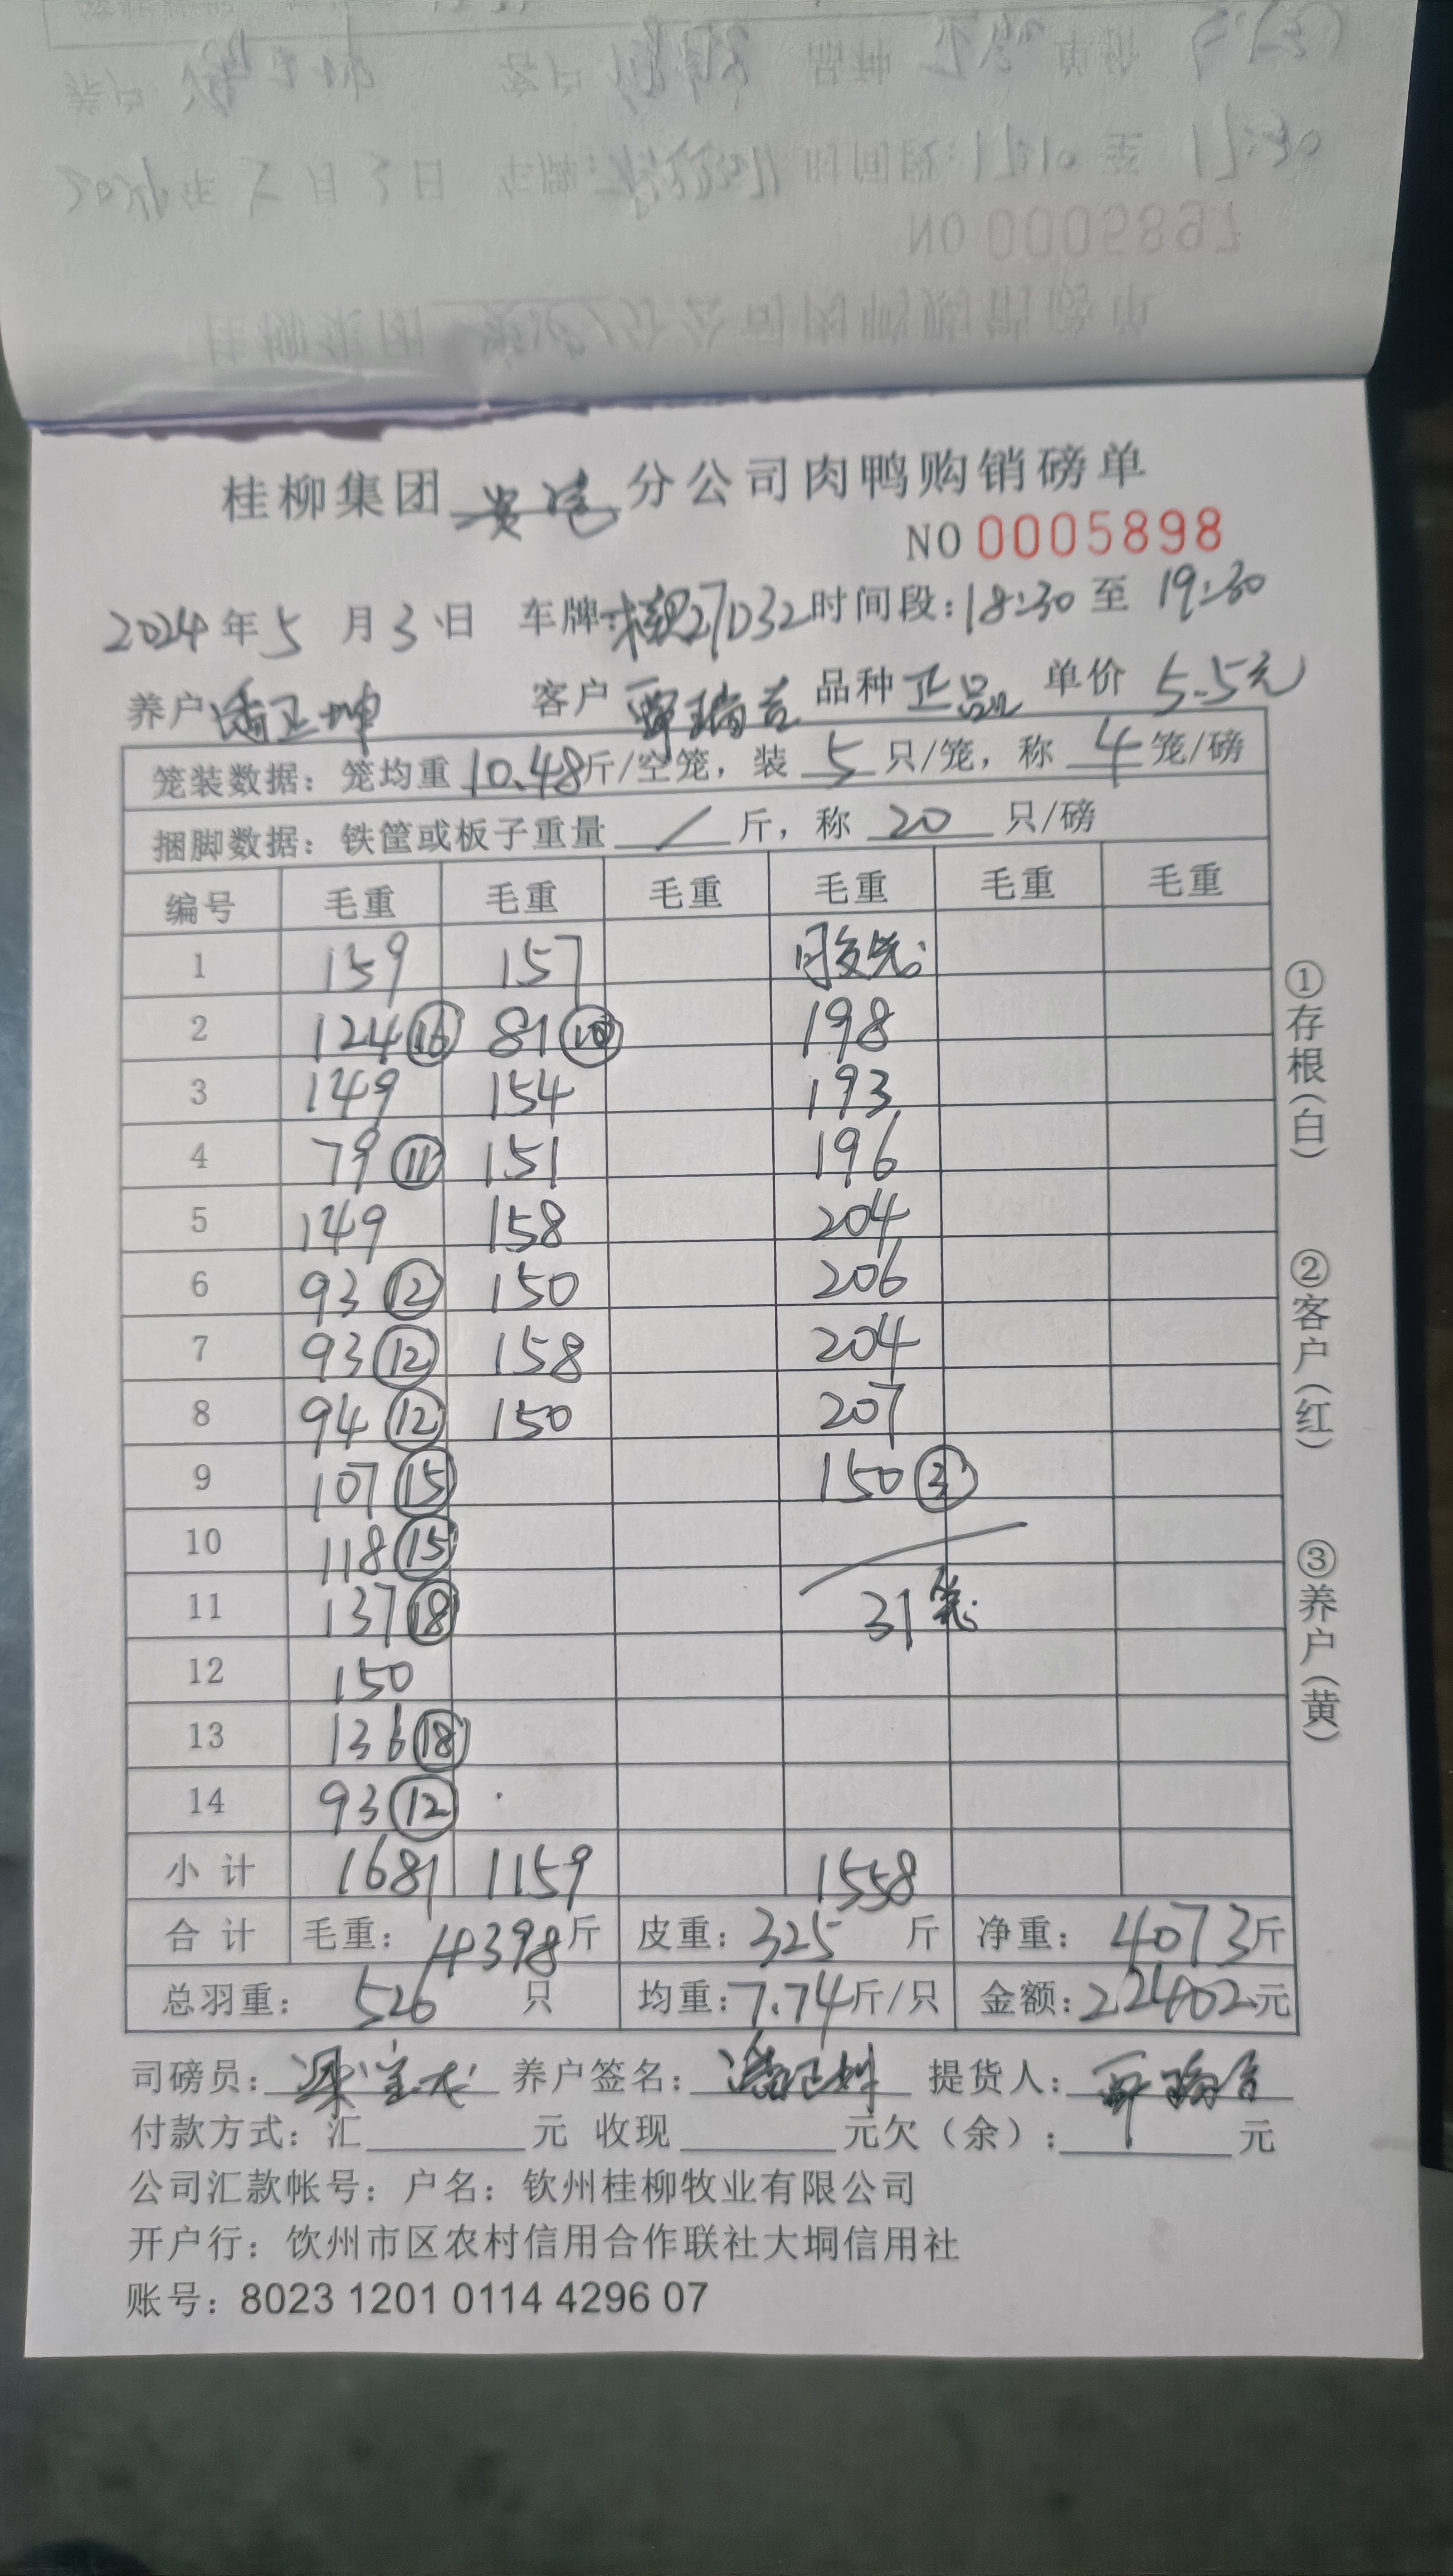 桂柳集团 分公司肉鸭购销磅单
NO 0005898
2024年5月3日 车牌: 27D32 时间段:18:30至19:30
养户 潘正坤 客户 覃瑞吉 品种 正品 单价 5.5元
笼装数据:笼均重10.48斤/空笼,装5只/笼,称4笼/磅
捆脚数据:铁筐或板子重量/斤,称20只/磅
编号 毛重 毛重 毛重 毛重 毛重 毛重
1 159 157
2 124⑯ 81⑩ 198
3 149 154 193
4 79⑪ 151 196
5 149 158 204
6 93⑫ 150 206
7 93⑫ 158 204
8 94⑫ 150 207
9 107⑮ 150③
10 118⑮
11 137⑱ 31笼
12 150
13 136⑱
14 93⑫
小计 1681 1159 1558
合计 毛重:4398斤 皮重:325斤 净重:4073斤
总羽重:526只 均重:7.74斤/只 金额:22402元
司磅员: 养户签名:潘正坤 提货人:覃瑞吉
付款方式:汇 元 收现 元欠(余): 元
公司汇款帐号:户名:钦州桂柳牧业有限公司
开户行:饮州市区农村信用合作联社大垌信用社
账号:8023 1201 0114 4296 07
①存根(白)
②客户(红)
③养户(黄)